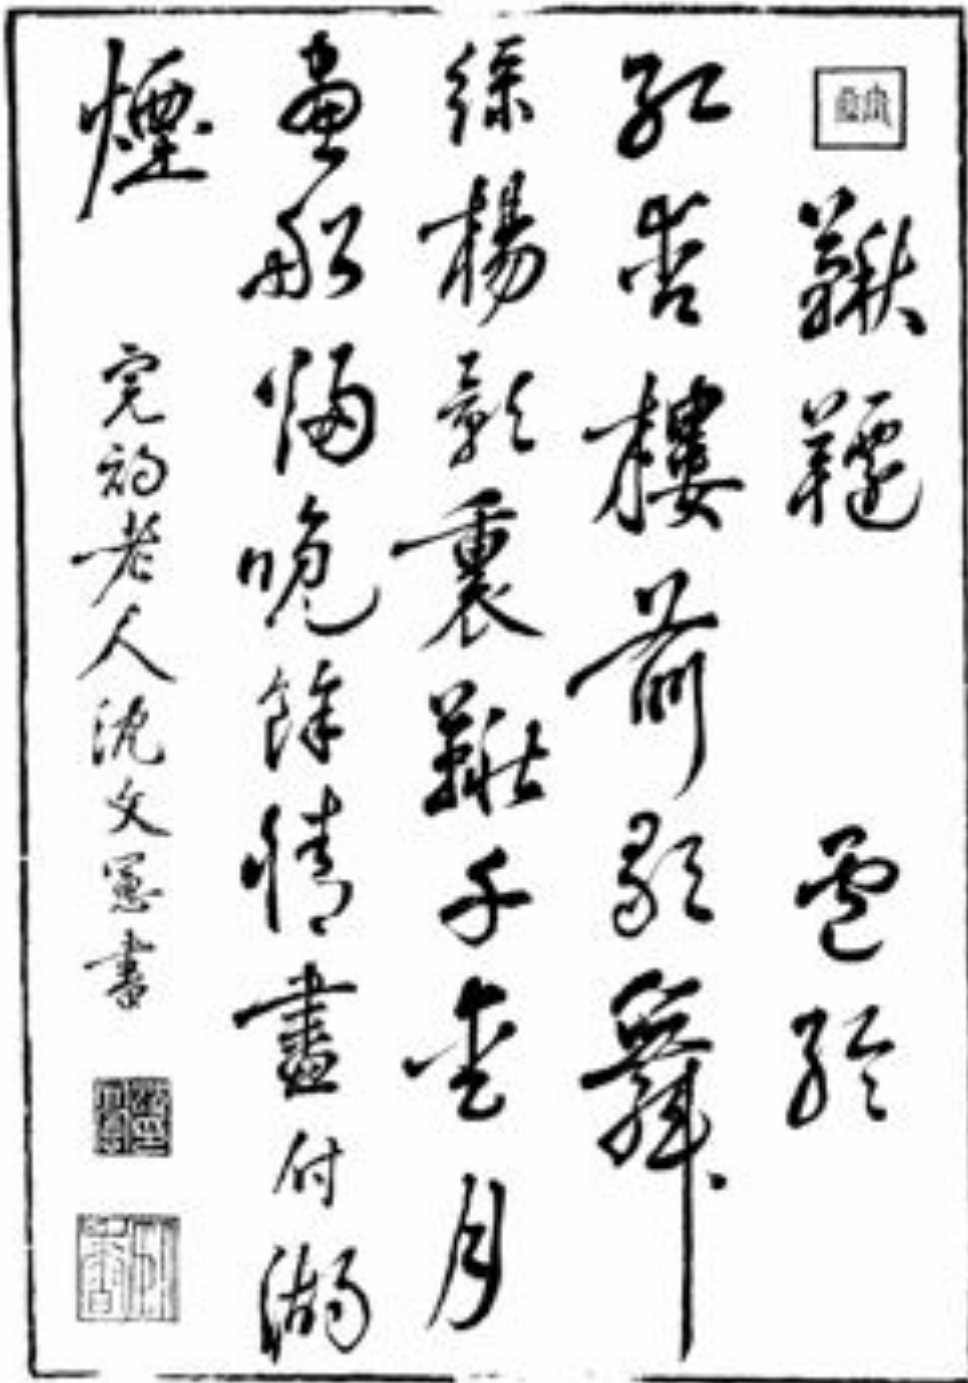 鞦韆 盧綸
紅杏樓前歌舞
綠楊影裏鞦千金月
畫船歸晚餘情盡付湖
煙 完初老人沈文憲書